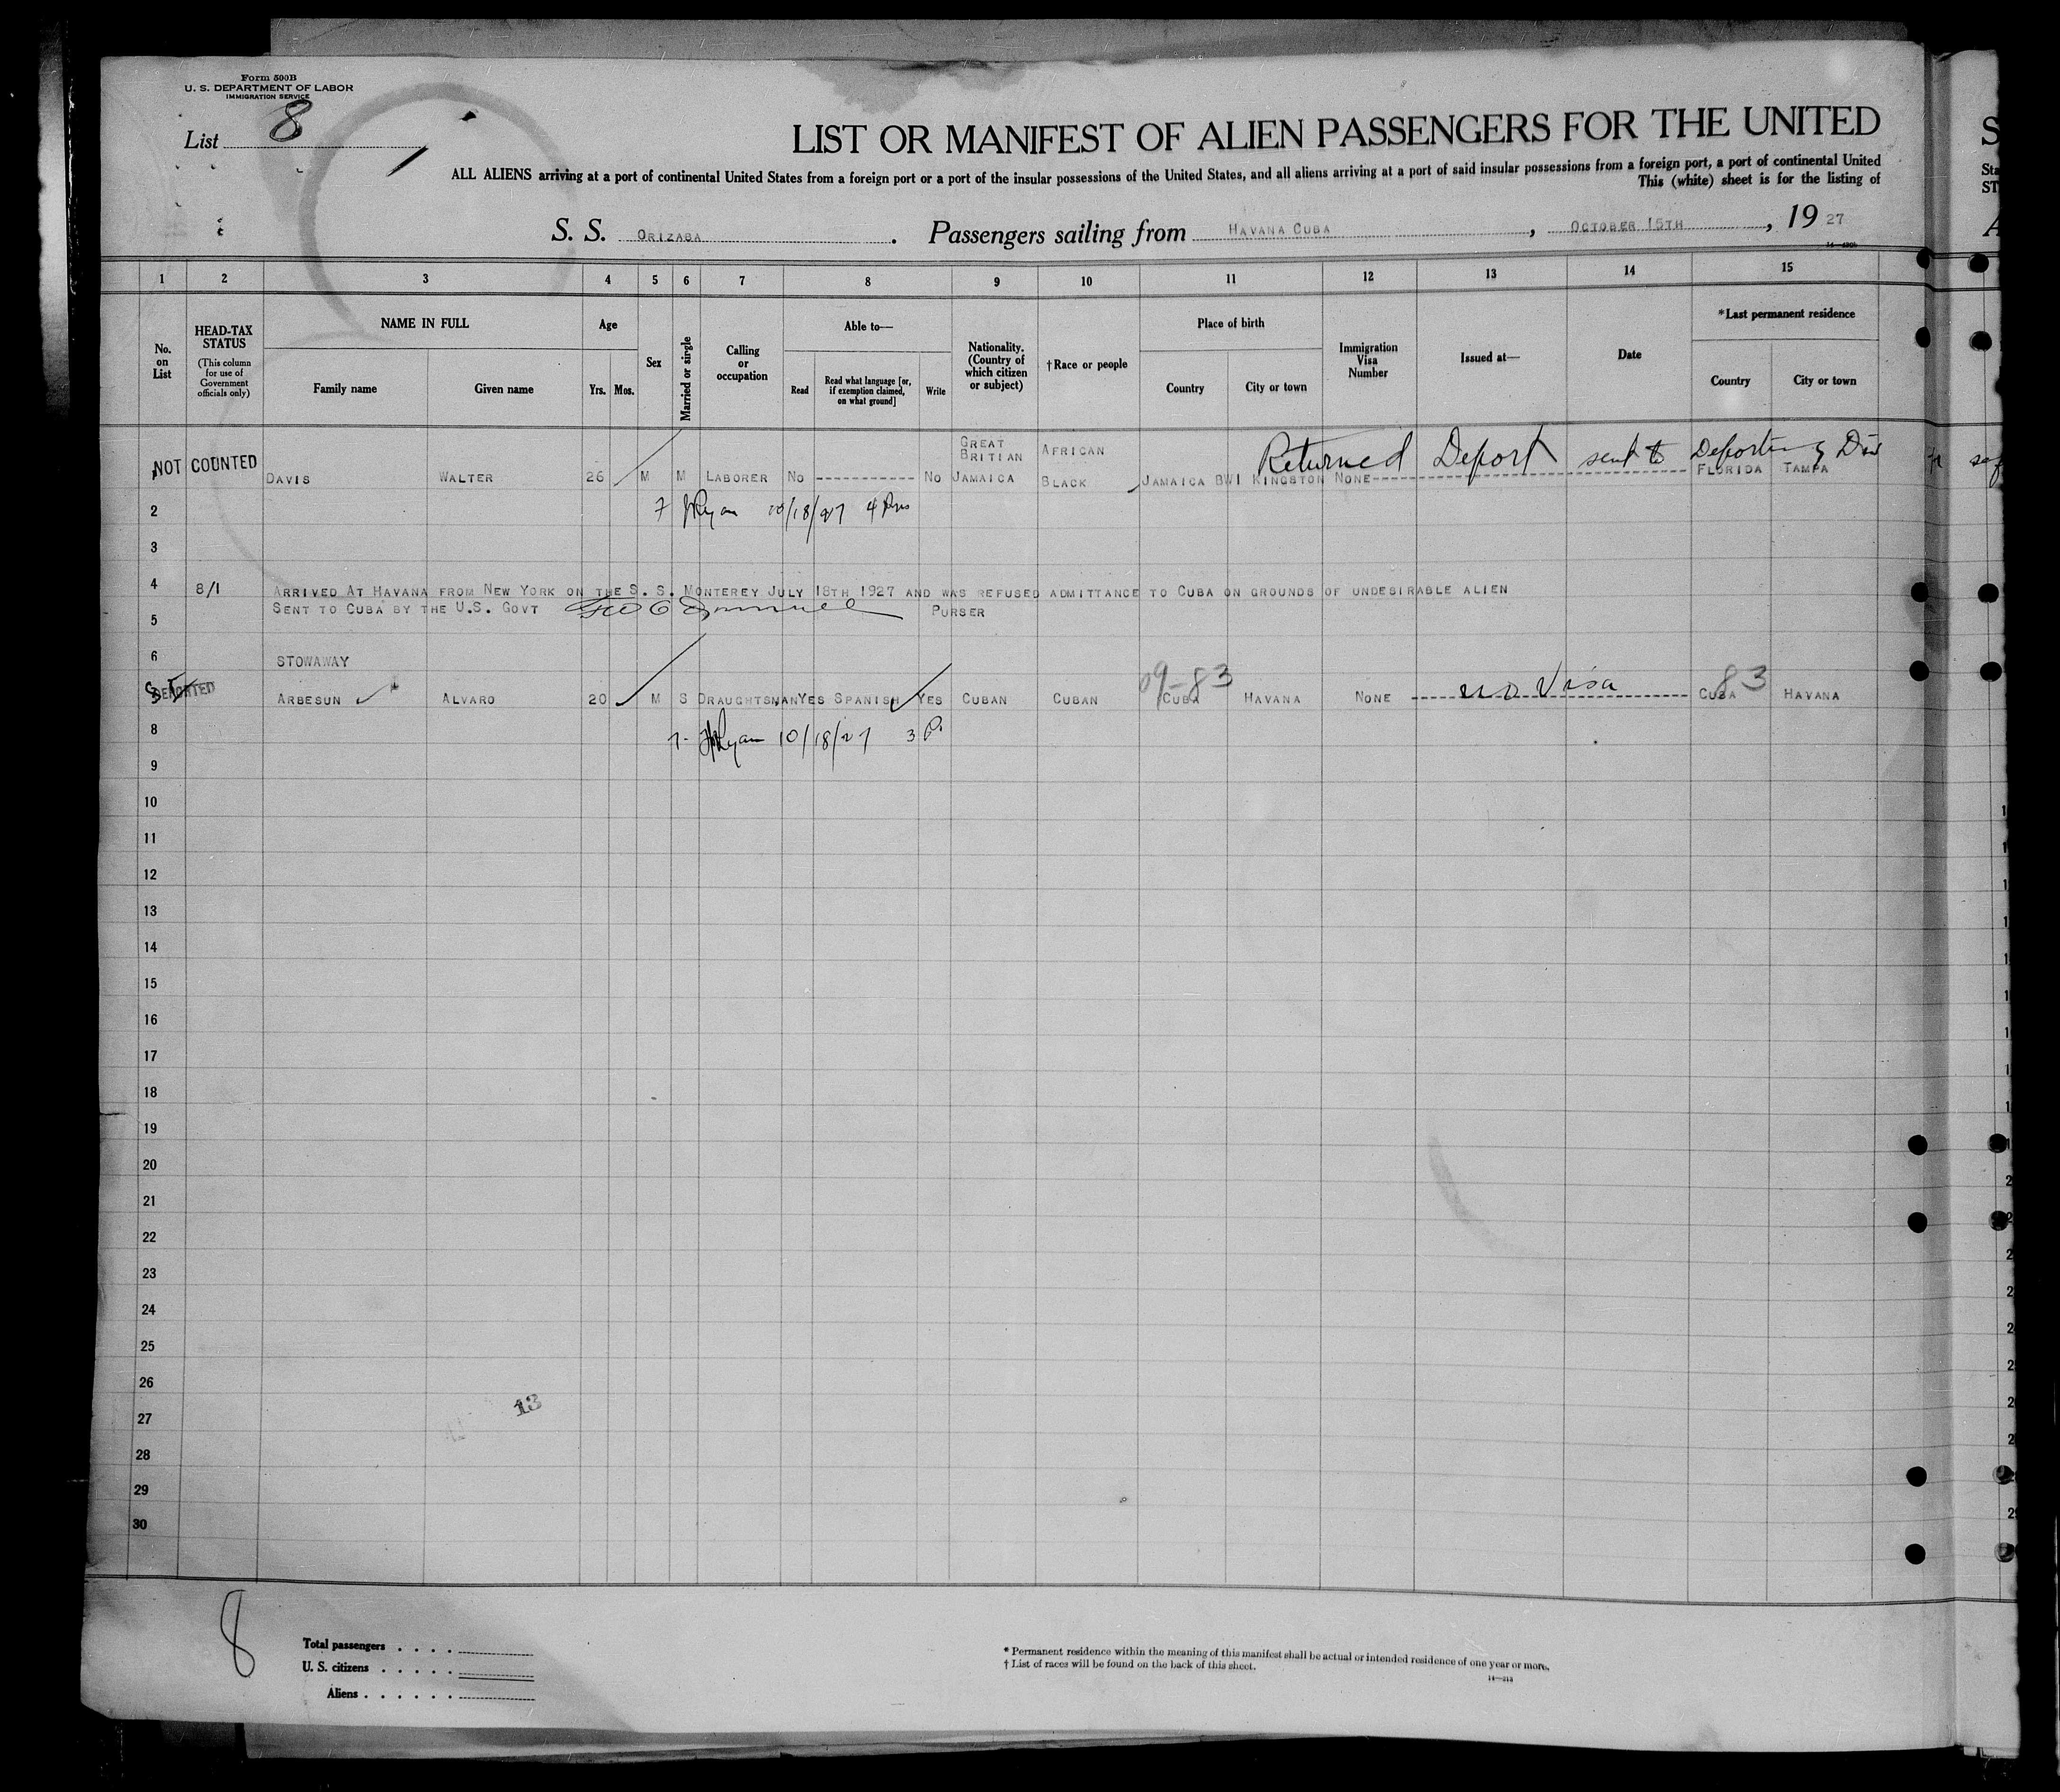 Form 500B
U. S. DEPARTMENT OF LABOR
IMMIGRATION SERVICE
List 8
LIST OR MANIFEST OF ALIEN PASSENGERS FOR THE UNITED
ALL ALIENS arriving at a port of continental United States from a foreign port or a port of the insular possessions of the United States, and all aliens arriving at a port of said insular possessions from a foreign port, a port of continental United
This (white) sheet is for the listing of
S. S. ORIZABA. Passengers sailing from HAVANA CUBA, OCTOBER 15TH, 19 27
1 2 3 4 5 6 7 8 9 10 11 12 13 14 15
No. on List
HEAD-TAX STATUS
(This column for use of Government officials only)
NAME IN FULL
Family name Given name
Age
Yrs. Mos.
Sex
Married or single
Calling or occupation
Able to—
Read
Read what language [or, if exemption claimed, on what ground]
Write
Nationality. (Country of which citizen or subject)
†Race or people
Place of birth
Country City or town
Immigration Visa Number
Issued at—
Date
*Last permanent residence
Country City or town
GREAT BRITIAN AFRICAN
Returned Deport sent to Deporting Div
NOT COUNTED
1 DAVIS WALTER 26 M M LABORER NO ------------ NO JAMAICA BLACK JAMAICA BWI KINGSTON NONE FLORIDA TAMPA
2 7 Ryan 10/18/27
3
4 8/1 ARRIVED AT HAVANA FROM NEW YORK ON THE S. S. MONTEREY JULY 18TH 1927 AND WAS REFUSED ADMITTANCE TO CUBA ON GROUNDS OF UNDESIRABLE ALIEN
SENT TO CUBA BY THE U.S. GOVT PURSER
5
6 STOWAWAY
09-83 83
DEPORTED ARBESUN ALVARO 20 M S DRAUGHTSMAN YES SPANISH YES CUBAN CUBAN CUBA HAVANA NONE no Visa CUBA HAVANA
8 7- Ryan 10/18/27 3 P.
9
10
11
12
13
14
15
16
17
18
19
20
21
22
23
24
25
26
13
27
28
29
30
8
Total passengers . . . .
U. S. citizens . . . . .
Aliens . . . . . .
* Permanent residence within the meaning of this manifest shall be actual or intended residence of one year or more.
† List of races will be found on the back of this sheet.
14—213